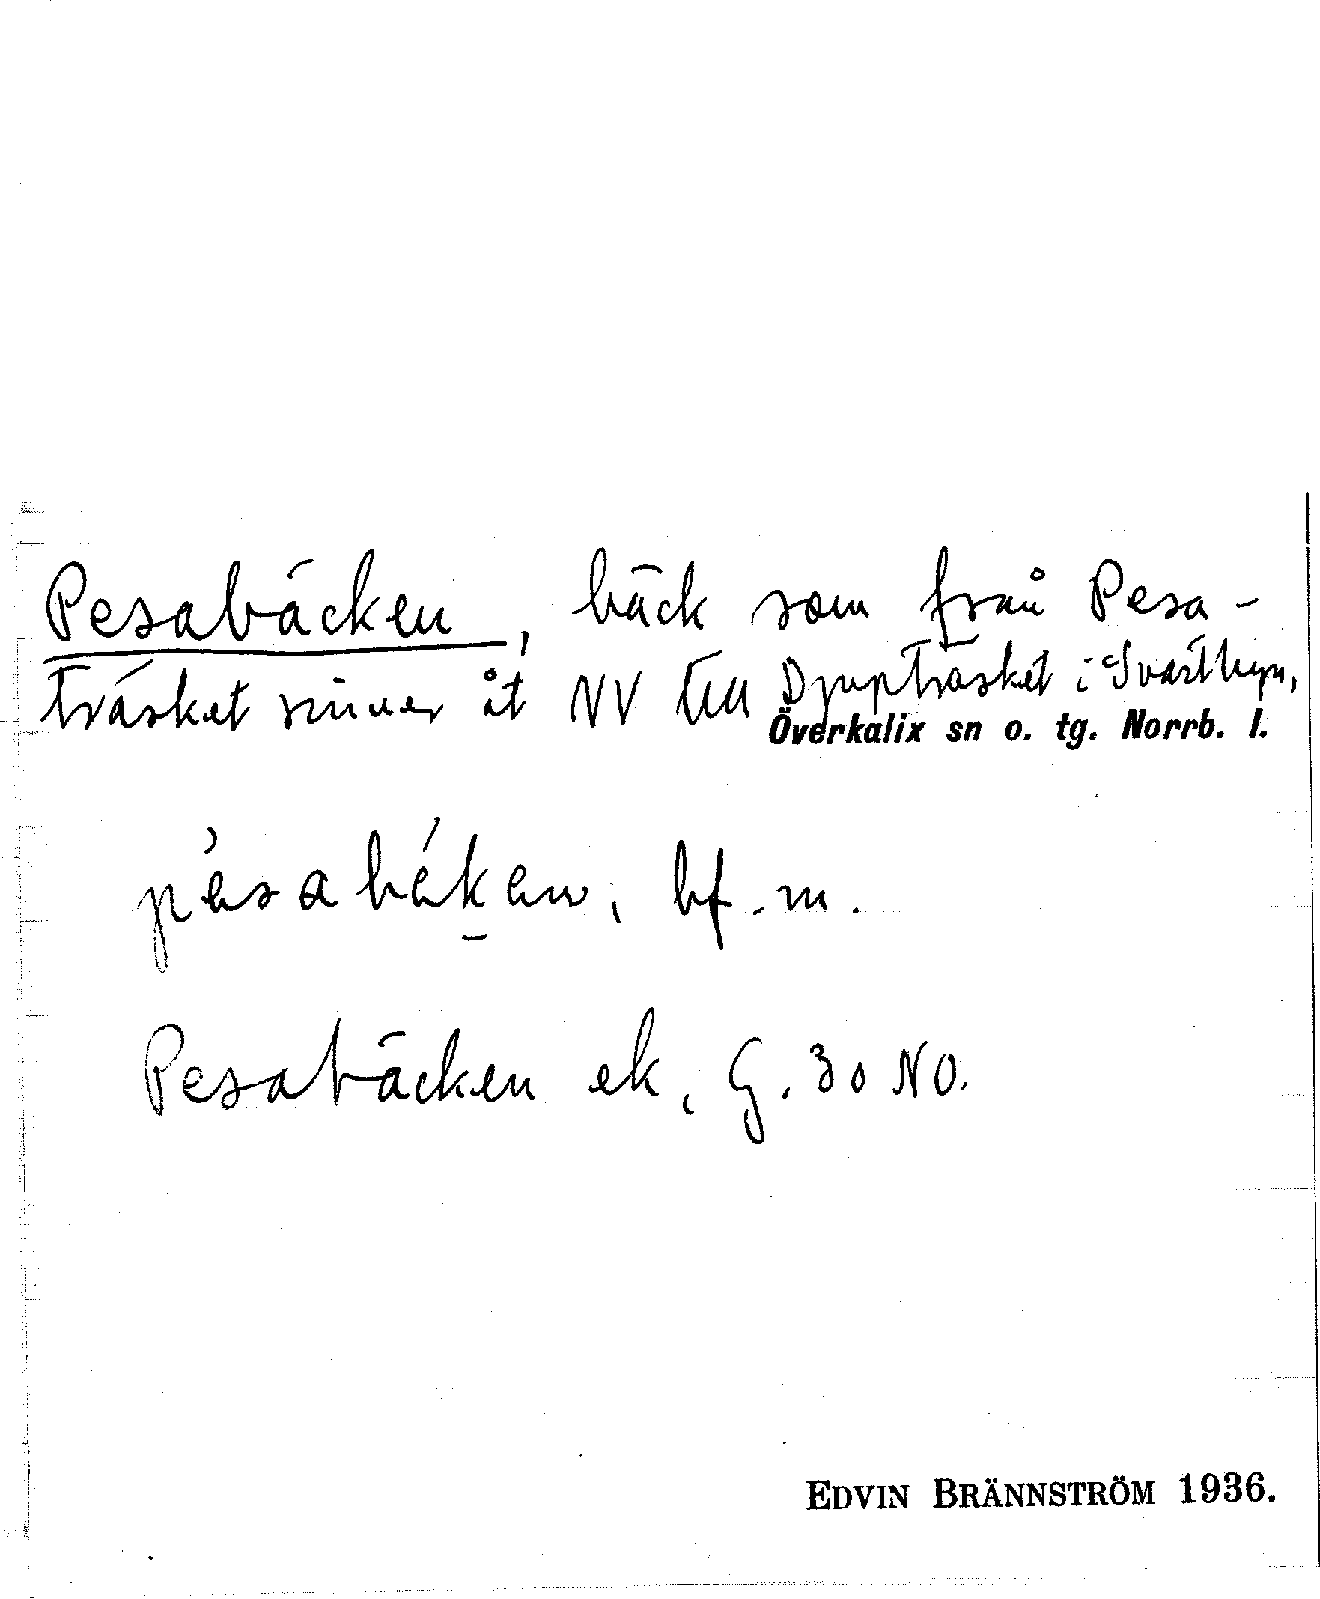 Pesabäcken, bäck som från Pesa-
träsket rinner åt NV till Djupträsket i Svartbyn,
Överkalix sn o. tg. Norrb. l.
pèsabék̠en, bf. m.
Pesabäcken ek, G. 30 NO.
EDVIN BRÄNNSTRÖM 1936.